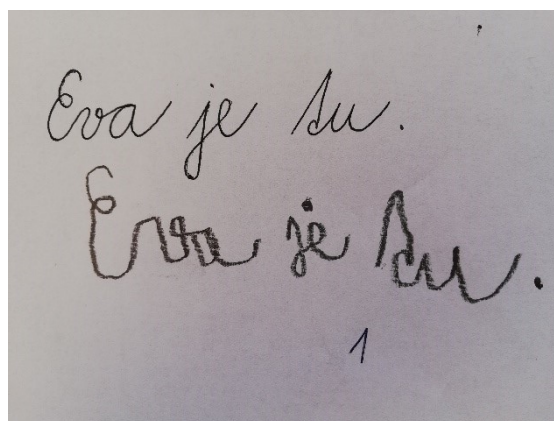 Eva je tu.
Eva je tu.
1